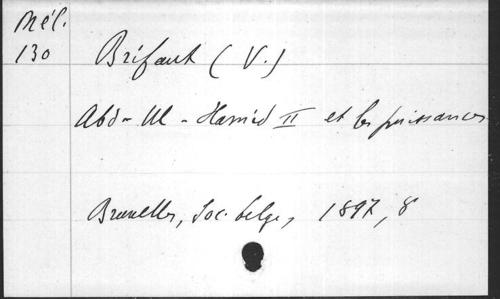 Mél.
130
Brifaut (V.)
Abd-Ul-Hamid II et les puissances
Bruxelles, Soc. belge, 1897, 8°